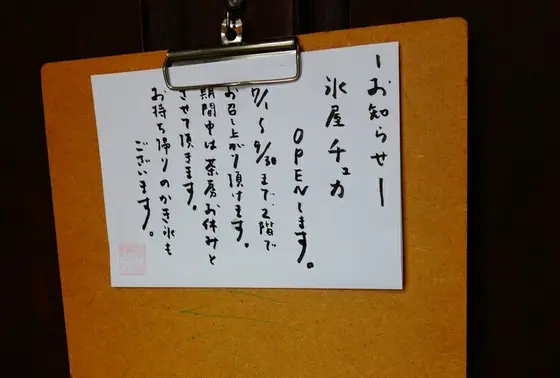 ーお知らせー
氷屋チュカ
OPENします。
7/1〜9/30まで、2階で
お召し上がり頂けます。
期間中は茶房お休みと
させて頂きます。
お持ち帰りのかき氷も
ございます。